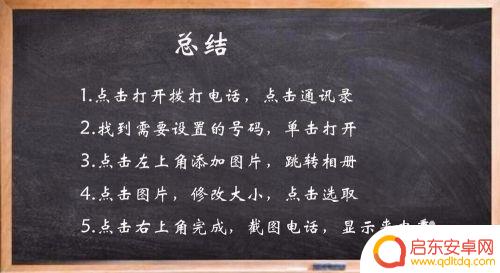 总结
1.点击打开拨打电话，点击通讯录
2.找到需要设置的号码，单击打开
3.点击左上角添加图片，跳转相册
4.点击图片，修改大小，点击选取
5.点击右上角完成，截图电话，显示来电
启东安卓网
www.qdltdq.com